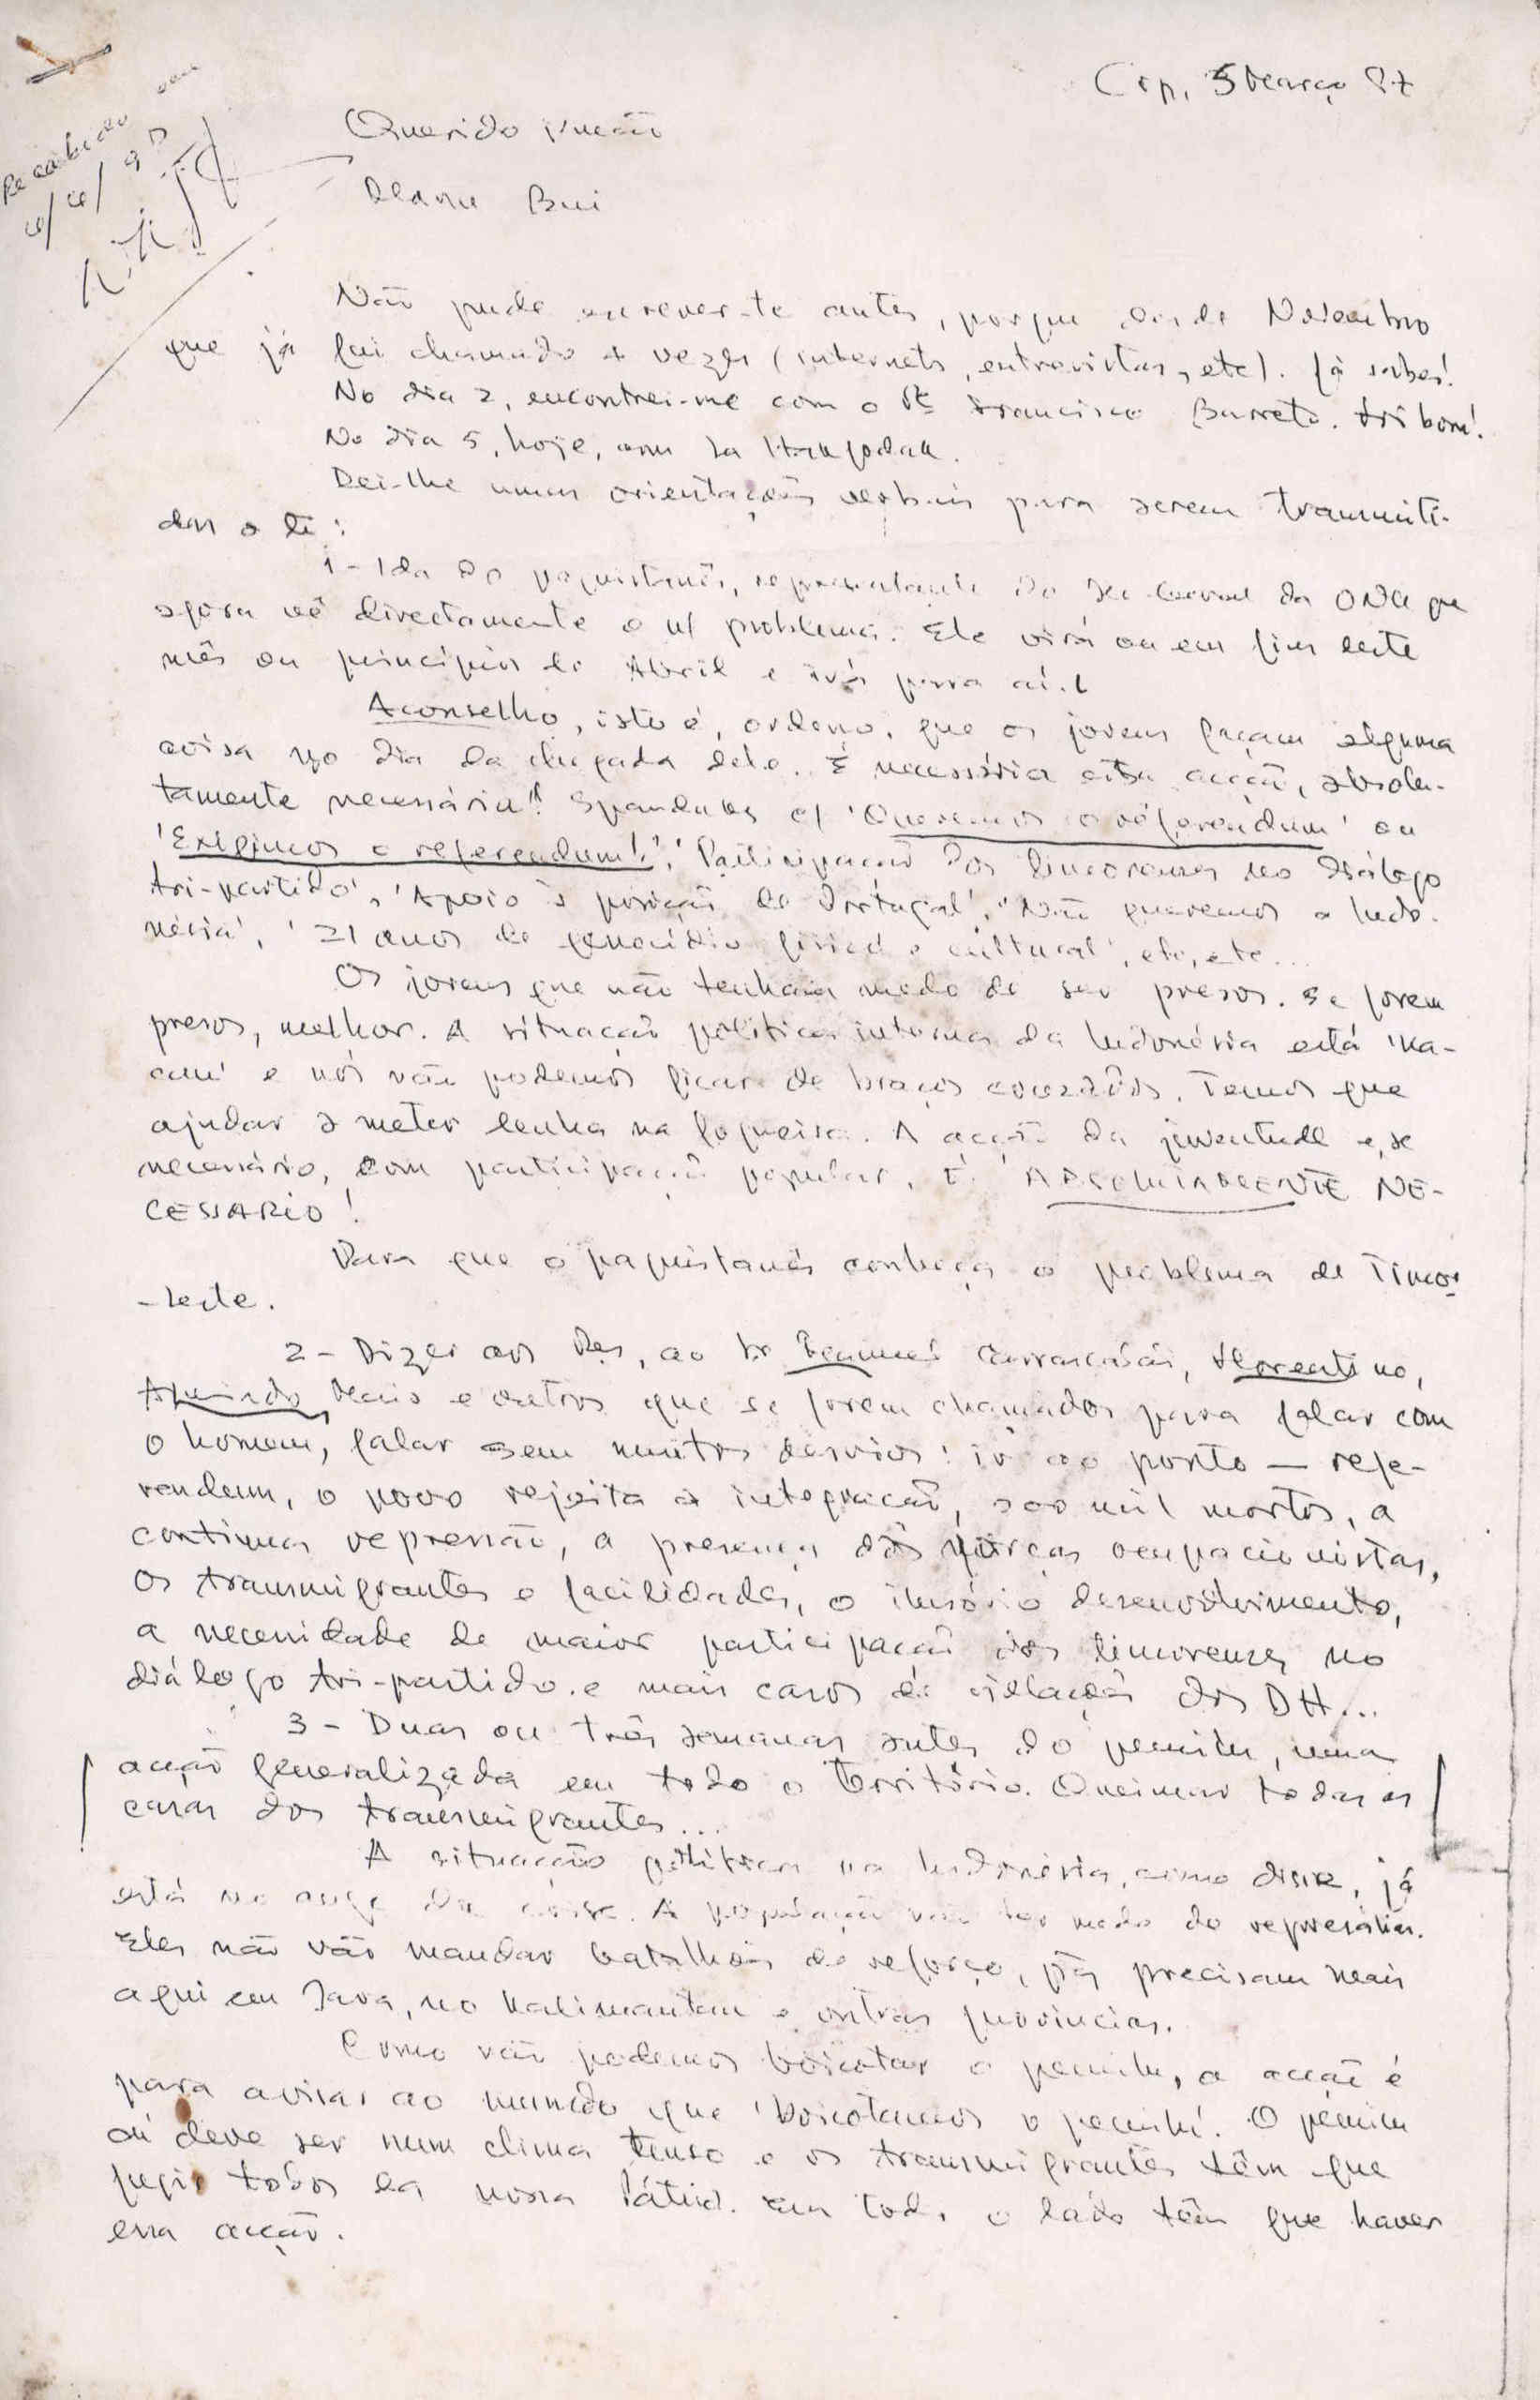 Crp, 5 Março 97
Recebido em
Querido irmão
Mau Bui
Não pude escrever-te antes, porque desde Novembro
que já fui chamado 4 vezes (internets, entrevistas, etc). Já sabes!
No dia 2, encontrei-me com o Pe Francisco Barreto. Foi bom!
No dia 5, hoje, com
Dei-lhe umas orientações verbais para serem transmiti-
das a ti:
1 - Ida do paquistanês, representante do Sec. Geral da ONU que
agora vê directamente o n/ problema. Ele virá ou em fins deste
mês ou princípios de Abril e irá para aí.
Aconselho, isto é, ordeno, que os jovens façam alguma
coisa no dia da chegada dele. É necessária esta acção, absolu-
tamente necessária! Spanduks c/ 'Queremos o referendum' ou
'Exigimos o referendum!', 'Participação dos timorenses no diálogo
tri-partido', 'Apoio à posição de Portugal', 'Não queremos a Indo-
nésia', '21 anos de genocídio físico e cultural', etc, etc...
Os jovens que não tenham medo de ser presos. Se forem
presos, melhor. A situação política interna da Indonésia está 'ka-
cau' e nós não podemos ficar de braços cruzados. Temos que
ajudar a meter lenha na fogueira. A acção da juventude e, se
necessário, com participação popular, É ABSOLUTAMENTE NE-
CESSARIO!
Para que o paquistanês conheça o problema de Timor
-Leste.
2 - Dizer aos Pes, ao Sr Carrascalão, Florentino,
Armindo Maia e outros que se forem chamados para falar com
o homem, falar sem muitos desvios: ir ao ponto — refe-
rendum, o povo rejeita a integração, 200 mil mortos, a
contínua repressão, a presença das forças ocupacionistas,
os transmigrantes e facilidades, o ilusório desenvolvimento,
a necessidade de maior participação dos timorenses no
diálogo tri-partido e mais casos de violações dos DH...
3 - Duas ou três semanas antes do pemilu, uma
acção generalizada em todo o Território. Queimar todas as
casas dos transmigrantes...
A situação política na Indonésia, como disse, já
está no auge da crise. A população não ter medo de represálias.
Eles não vão mandar batalhões de reforço, pois precisam mais
aqui em Java, no Kalimantan e outras províncias.
Como não podemos boicotar o pemilu, a acção é
para avisar ao mundo que 'boicotamos o pemilu'. O pemilu
aí deve ser num clima tenso e os transmigrantes têm que
fugir todos da nossa Pátria. Em todo o lado têm que haver
essa acção.